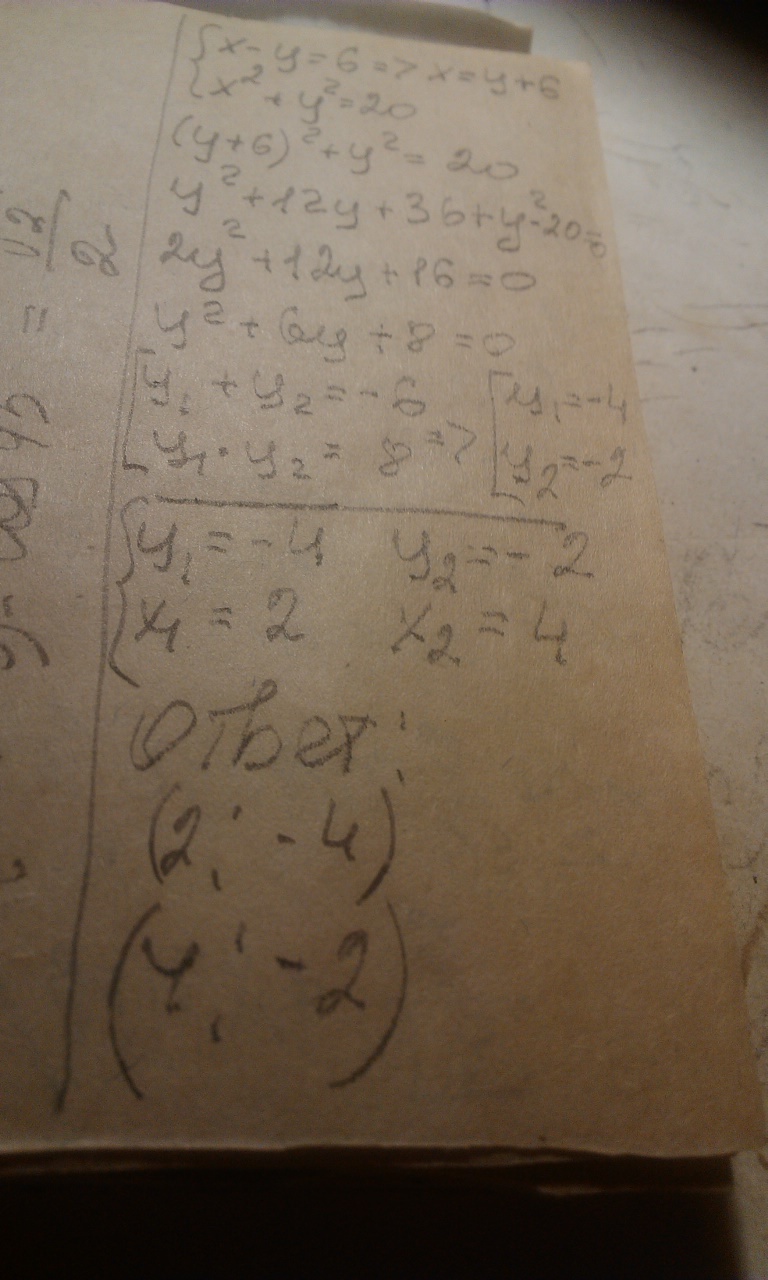 {x - y = 6 => x = y + 6
{x² + y² = 20
(y+6)² + y² = 20
y² + 12y + 36 + y² - 20 = 0
2y² + 12y + 16 = 0
y² + 6y + 8 = 0
[y₁ + y₂ = -6 [y₁ = -4
[y₁ · y₂ = 8 => [y₂ = -2
{y₁ = -4 y₂ = -2
{x₁ = 2 x₂ = 4
Ответ:
(2; -4)
(4; -2)
√2/2
=